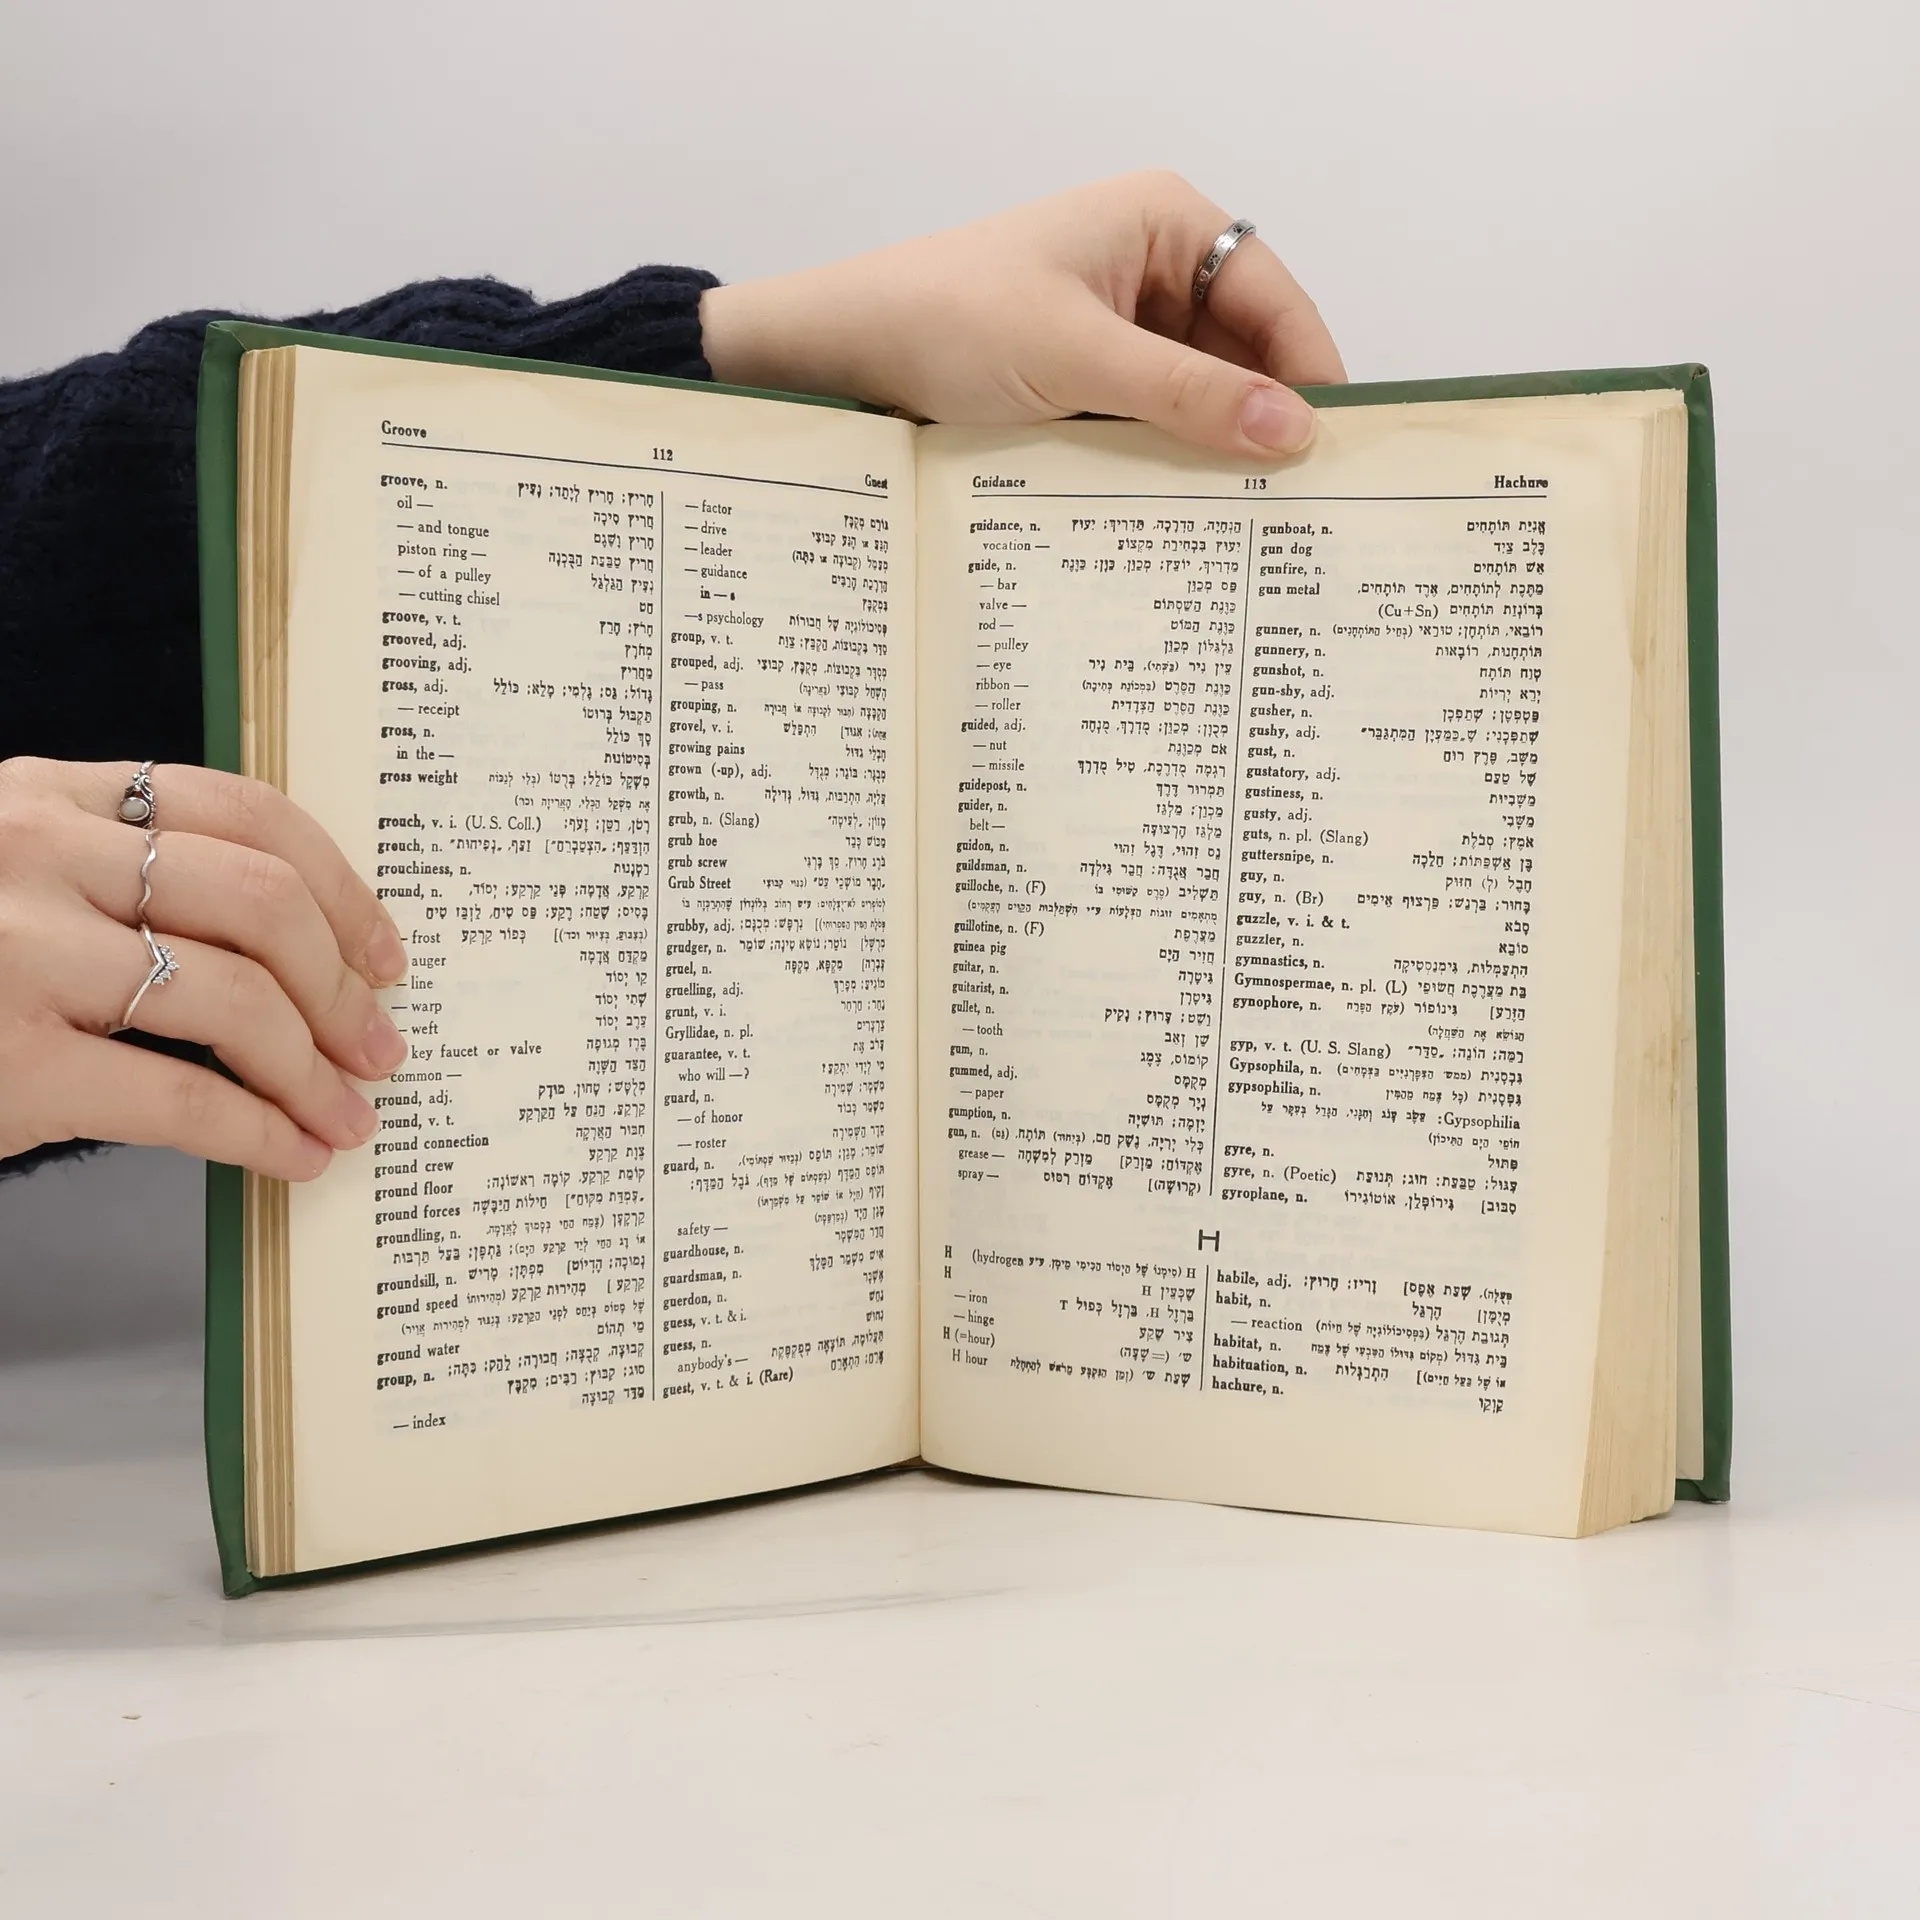 Groove
112
Guest
groove, n. חָרִיץ; חָרִיץ לְיָתֵד; נָעִיץ
oil — חֲרִיץ סִיכָה
— and tongue חָרִיץ וְשֶׁגֶם
piston ring — חֲרִיץ טַבַּעַת הַבֻּכְנָה
— of a pulley נְעִיץ הַגַּלְגַּל
— cutting chisel חֹט
groove, v. t. חָרֹץ; חָרֵץ
grooved, adj. מְחֹרָץ
grooving, adj. מַחֲרִיץ
gross, adj. גָּדוֹל; גַּס; גָּלְמִי; מָלֵא; כּוֹלֵל
— receipt תַּקְבּוּל בְּרוּטוֹ
gross, n. סַךְ כּוֹלֵל
in the — בְּסִיטוֹנוּת
gross weight מִשְׁקָל כּוֹלֵל; בְּרֻטוֹ (בְּלִי לְנַכּוֹת
אֶת מִשְׁקַל הַכְּלִי, הָאֲרִיזָה וכד׳)
grouch, v. i. (U. S. Coll.) רָטֹן, רַטֵּן; זָעֹף;
grouch, n. זַעַף, „נְפִיחוּת״ [הִזְדַּעֵף; „הִצְטַבְרֵחַ״
grouchiness, n. רַטְנָנוּת
ground, n. קַרְקַע, אֲדָמָה; פְּנֵי קַרְקַע; יְסוֹד,
בָּסִיס; שֶׁטַח; רֶקַע; פַּס טִיחַ, לַזְבֵּז טִיחַ
— frost כְּפוֹר קַרְקַע [(בְּצִבּוּעַ, בְּצִיּוּר וכד׳)
auger מַקְדֵּחַ אֲדָמָה
— line קַו יְסוֹד
— warp שְׁתִי יְסוֹד
— weft עֵרֶב יְסוֹד
key faucet or valve בֶּרֶז מְגוּפָה
common — הַצַּד הַשָּׁוֶה
ground, adj. מְלֻטָּשׁ; טָחוּן, מוּדָק
round, v. t. קַרְקֵעַ, הַנַּח עַל הַקַּרְקַע
ground connection חִבּוּר הַאֲרָקָה
ground crew צֶוֶת קַרְקַע
ground floor קוֹמַת קַרְקַע, קוֹמָה רִאשׁוֹנָה;
ground forces חֵילוֹת הַיַּבָּשָׁה [„עֶמְדַּת מִקּוּחַ״
groundling, n. קַרְקְעָן (צֶמַח הַחַי בְּסָמוּךְ לָאֲדָמָה,
אוֹ דָּג הַחַי לְיַד קַרְקַע הַיָּם); גַּחְפָּן; בַּעַל תַּרְבּוּת
groundsill, n. מִפְתָּן; מָרִישׁ [נְמוּכָה; הֶדְיוֹט
ground speed מְהִירוּת קַרְקַע (מְהִירוּתוֹ [קַרְקַע
שֶׁל מָטוֹס בְּיַחַס לִפְנֵי הַקַּרְקַע; בְּנִגּוּד לִמְהִירוּת אֲוִיר)
ground water מֵי תְהוֹם
group, n. קְבוּצָה, קְבֻצָּה; חֲבוּרָה; לַהַק; כִּתָּה;
סוּג; קִבּוּץ; רַבִּים; מְקֻבָּץ
— index מַדַּד קְבוּצָה
— factor גּוֹרֵם מְקֻבָּץ
— drive הֶנֵּעַ אוֹ הֶנַּע קִבּוּצִי
— leader מַפְעִל (קְבוּצָה אוֹ כִּתָּה)
— guidance הַדְרָכַת הָרַבִּים
in — s בִּמְקֻבָּץ
—s psychology פְּסִיכוֹלוֹגְיָה שֶׁל חֲבוּרוֹת
group, v. t. סַדֵּר בִּקְבוּצוֹת, הַקְבֵּץ; צַוֵּת
grouped, adj. מְסֻדָּר בִּקְבוּצוֹת, מְקֻבָּץ, קִבּוּצִי
— pass הֶשְׁחֵל קִבּוּצִי (בַּאֲרִיגָה)
grouping, n. הַקְבָּצָה (חִבּוּר לִקְבוּצָה אוֹ חֲבוּרָה
grovel, v. i. הִתְפַּלֵּשׁ [אַחַת); אִגּוּד
growing pains חֶבְלֵי גִדּוּל
grown (-up), adj. מְבֻגָּר; בּוֹגֵר; מְגֻדָּל
growth, n. עֲלִיָּה, הִתְרַבּוּת, גִּדּוּל, גְּדִילָה
grub, n. (Slang) מָזוֹן; „לְעִיטָה״
grub hoe מַכּוֹשׁ כָּבֵד
grub screw בֹּרֶג חָרוּץ, סַךְ בָּרְגִּי
Grub Street
grubby, adj.
grudger, n.
gruel, n. מִקְפָּא, מִקְפָּה
gruelling, adj. מוֹגִיעַ; מְפָרֵךְ
grunt, v. i. נָחֹר; חַרְחֵר
Gryllidae, n. pl. צְרָצְרִים
guarantee, v. t. עָרֹב אֶת
who will —? מִי לְיָדִי יִתָּקַע?
guard, n. מִשְׁמָר; שְׁמִירָה
— of honor מִשְׁמַר כָּבוֹד
— roster סֵדֶר הַשְּׁמִירָה
guard, n. שׁוֹמֵר; מָגֵן; תּוֹפֵס
safety —
guardhouse, n. חֲדַר הַמִּשְׁמָר
guardsman, n. אִישׁ מִשְׁמַר הַמֶּלֶךְ
guerdon, n.
guess, v. t. & i. נַחֵשׁ
guess, n. נִחוּשׁ
anybody's — תַּעֲלוּמָה, תּוֹצָאָה מְפֻקְפֶּקֶת
guest, v. t. & i. (Rare) אָרֵחַ; הִתְאָרֵחַ
Guidance
113
Hachure
guidance, n. הַנְחָיָה, הַדְרָכָה, תַּדְרִיךְ; יִעוּץ
vocation — יִעוּץ בִּבְחִירַת מִקְצוֹעַ
guide, n. מַדְרִיךְ, יוֹעֵץ; מְכַוֵּן, כַּוָּן; כַּוֶּנֶת
— bar פַּס מְכַוֵּן
valve — כַּוֶּנֶת הַשַּׁסְתּוֹם
rod — כַּוֶּנֶת הַמּוֹט
— pulley גַּלְגִּלּוֹן מְכַוֵּן
— eye עֵין נִיר (בְּשֶׁתִי), בֵּית נִיר
ribbon — כַּוֶּנֶת הַסֶּרֶט (בִּמְכוֹנַת כְּתִיבָה)
— roller כַּוֶּנֶת הַסֶּרֶט הַצְּדָדִית
guided, adj. מְכֻוָּן; מְכַוֵּן; מֻדְרָךְ, מֻנְחֶה
— nut אֹם מְכַוֶּנֶת
— missile רִגְמָה מֻדְרֶכֶת, טִיל מֻדְרָךְ
guidepost, n. תַּמְרוּר דֶּרֶךְ
guider, n. מְכַוֵּן; מַלְגֵּז
belt — מַלְגֵּז הָרְצוּעָה
guidon, n. נֵס זִהוּי, דֶּגֶל זִהוּי
guildsman, n. חֲבֵר אֲגֻדָּה; חֲבֵר גִּילְדָה
guilloche, n. (F) תַּשְׁלִיב (סֶרֶט קִשּׁוּטִי בּוֹ
מֻתְאָמִים זוּגוֹת הַצְּלָעוֹת ע״י הִשְׁתַּלְּבוּת הַקַּוִּים הָעֲקֻמִּים)
guillotine, n. (F) מַעֲרֶפֶת
guinea pig חֲזִיר הַיָּם
guitar, n. גִּיטָרָה
guitarist, n. גִּיטָרָן
gullet, n. וֶשֶׁט; עָרוּץ; נָקִיק
— tooth שֵׁן זְאֵב
gum, n. קוֹמוֹס, צֶמֶג
gummed, adj. מְקֻמָּס
— paper נְיָר מְקֻמָּס
gumption, n. יָזְמָה; תּוּשִׁיָּה
gun, n. כְּלִי יְרִיָּה, נֶשֶׁק חַם, (בְּיִחוּד) תּוֹתָח, (גַּם)
grease — מַזְרֵק לְמִשְׁחָה [אֶקְדּוֹחַ; מַזְרֵק
spray — אֶקְדּוֹחַ רִסּוּס [(קְרוּשָׁה)
gunboat, n. אֳנִיַּת תּוֹתָחִים
gun dog כֶּלֶב צַיִד
gunfire, n. אֵשׁ תּוֹתָחִים
gun metal מַתֶּכֶת לְתוֹתָחִים, אֶרֶד תּוֹתָחִים,
בְּרוֹנְזַת תּוֹתָחִים (Cu+Sn)
gunner, n. רוֹבַאי, תּוֹתְחָן; טוּרַאי (בְּחֵיל הַתּוֹתְחָנִים)
gunnery, n. תּוֹתְחָנוּת, רוֹבָאוּת
gunshot, n. טְוַח תּוֹתָח
gun-shy, adj. יְרֵא יְרִיּוֹת
gusher, n. פַּטְפְּטָן; שְׁתַפְּכָן
gushy, adj. שְׁתַפְּכָנִי; שֶׁ„כְּמַעְיָן הַמִּתְגַּבֵּר״
gust, n. מַשָּׁב, פֶּרֶץ רוּחַ
gustatory, adj. שֶׁל טַעַם
gustiness, n. מַשָּׁבִיּוּת
gusty, adj. מַשָּׁבִי
guts, n. pl. (Slang) אֹמֶץ; סְבֹלֶת
guttersnipe, n. בֶּן אַשְׁפַּתּוֹת; חֵלְכָה
guy, n. חֶבֶל (לְ) חִזּוּק
guy, n. (Br) בָּחוּר; בַּרְנַשׁ; פַּרְצוּף אֵימִים
guzzle, v. i. & t. סָבֹא
guzzler, n. סוֹבֵא
gymnastics, n. הִתְעַמְּלוּת, גִּימְנַסְטִיקָה
Gymnospermae, n. pl. (L) בַּת מַעֲרֶכֶת חֲשׂוּפֵי
gynophore, n. גִּינוֹפוֹר (עֹקֶץ הַפֶּרַח [הַזֶּרַע
הַנּוֹשֵׂא אֶת הַשַּׁחֲלָה)
gyp, v. t. (U. S. Slang) רַמֵּה; הוֹנֵה; „סַדֵּר״
Gypsophila, n. גִּבְסָנִית (ממש׳ הַצִּפָּרְנִיִּים בַּצְּמָחִים)
gypsophilia, n. גִּפְסָנִית (כָּל צֶמַח מֵהַמִּין
Gypsophilia: עֵשֶׂב עָנֹג וְחִנָּנִי, הַגָּדֵל בְּעִקָּר עַל
חוֹפֵי הַיָּם הַתִּיכוֹן)
gyre, n. פִּתּוּל
gyre, n. (Poetic) עִגּוּל; טַבַּעַת; חוּג; תְּנוּעַת
gyroplane, n. גִּירוֹפְּלָן, אוֹטוֹגִירוֹ [סִבּוּב
H
H (hydrogen סִימָנוֹ שֶׁל הַיְסוֹד הַכִּימִי מֵימָן, ע״ע) H
H שְׁכֵעִין H
— iron בַּרְזֶל H, בַּרְזֶל כְּפוּל T
— hinge צִיר שֶׁקַע
H (=hour) ש׳ (=שָׁעָה)
H hour שְׁעַת ש׳ (זְמַן הַנִּקְבָּע מֵרֹאשׁ לְהַתְחָלַת
habile, adj. זָרִיז; חָרוּץ; [פְּעֻלָּה), שְׁעַת אֶפֶס
habit, n. הֶרְגֵּל [מְיֻמָּן
— reaction תְּגוּבַת הֶרְגֵּל (בִּפְסִיכוֹלוֹגְיָה שֶׁל חַיּוֹת)
habitat, n. בֵּית גִּדּוּל (מְקוֹם גִּדּוּלוֹ הַטִּבְעִי שֶׁל צֶמַח
habituation, n. הִתְרַגְּלוּת [(אוֹ שֶׁל בַּעַל חַיִּים
hachure, n. קַוְקָו